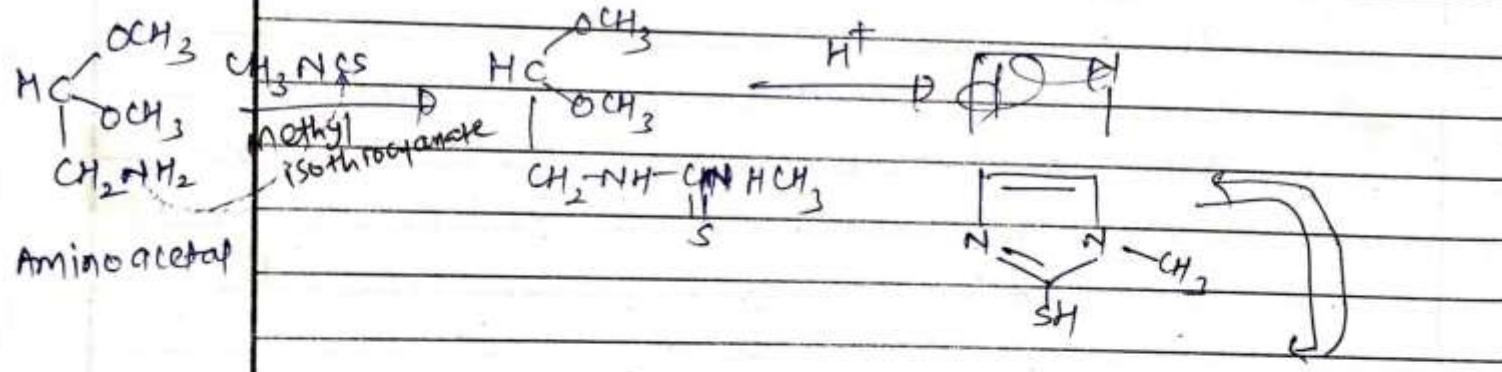 OCH3
HC
OCH3
CH2NH2
Aminoacetal
CH3NCS
methyl
isothiocyanate
OCH3
HC
OCH3
CH2-NH-C NHCH3
S
H+
N
N
N
CH3
SH